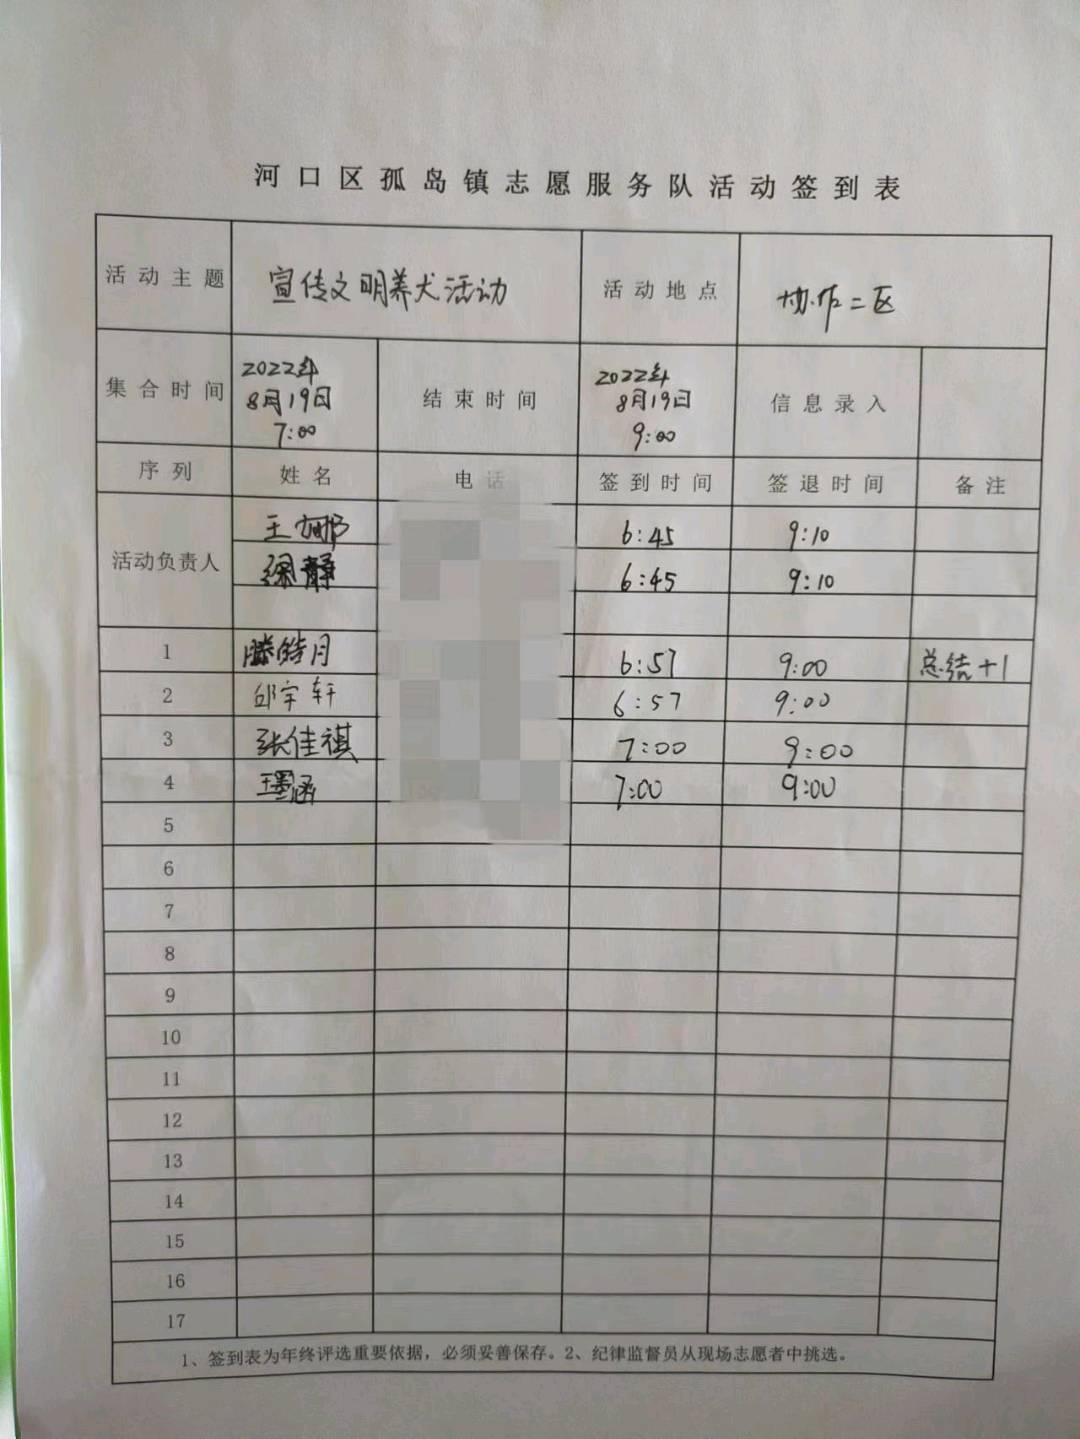 河口区孤岛镇志愿服务队活动签到表
活动主题 宣传文明养犬活动 活动地点 协作二区
集合时间 2022年8月19日7:00 结束时间 2022年8月19日9:00 信息录入
序列 姓名 电话 签到时间 签退时间 备注
活动负责人
王娜 6:45 9:10
徐静 6:45 9:10
1 滕皓月 6:57 9:00 总结+1
2 邱宇轩 6:57 9:00
3 张佳祺 7:00 9:00
4 王墨涵 7:00 9:00
5
6
7
8
9
10
11
12
13
14
15
16
17
1、签到表为年终评选重要依据，必须妥善保存。2、纪律监督员从现场志愿者中挑选。